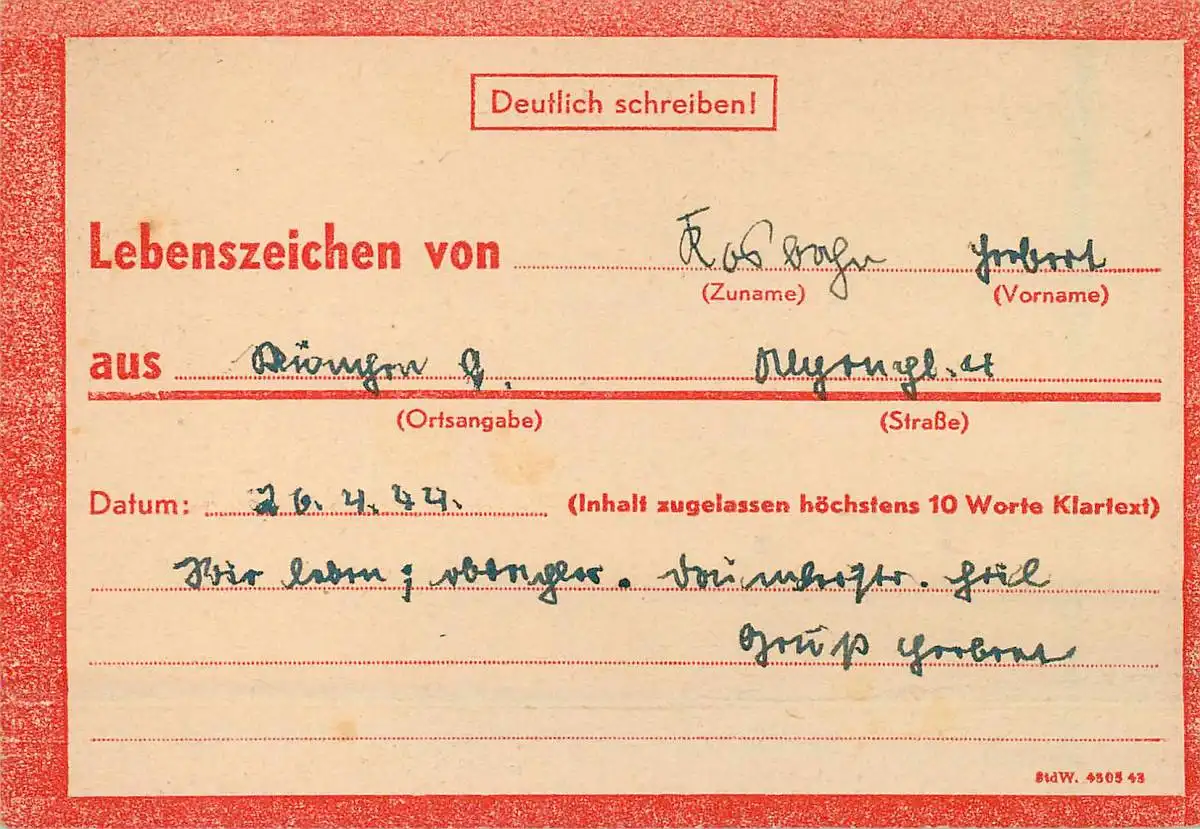 Deutlich schreiben!
Lebenszeichen von Herbert
(Zuname) (Vorname)
aus München 9.
(Ortsangabe) (Straße)
Datum: 26.4.44. (Inhalt zugelassen höchstens 10 Worte Klartext)
Wir leben; heil
Gruß Herbert
StdW. 4505 43